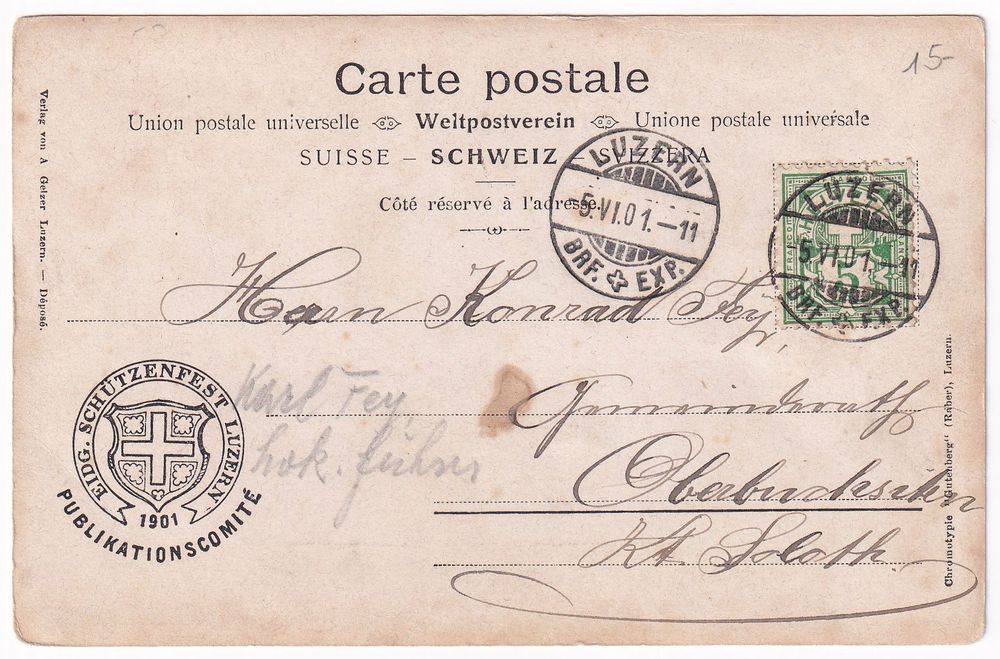 15-
Carte postale
Union postale universelle Weltpostverein Unione postale universale
SUISSE – SCHWEIZ – SVIZZERA
Côté réservé à l'adresse.
LUZERN
-5.VI.01.-11
BRF. EXP.
LUZERN
-5.VI.01.-11
BRF. EXP.
5
Herrn Konrad Fey,
Gemeinderath
Kt. Soloth.
Karl Fey
Lok. führer
EIDG. SCHÜTZENFEST LUZERN
1901
PUBLIKATIONSCOMITÉ
Verlag von A Gelzer Luzern. — Déposé.
Chromotypie "Gutenberg" (Räber), Luzern.